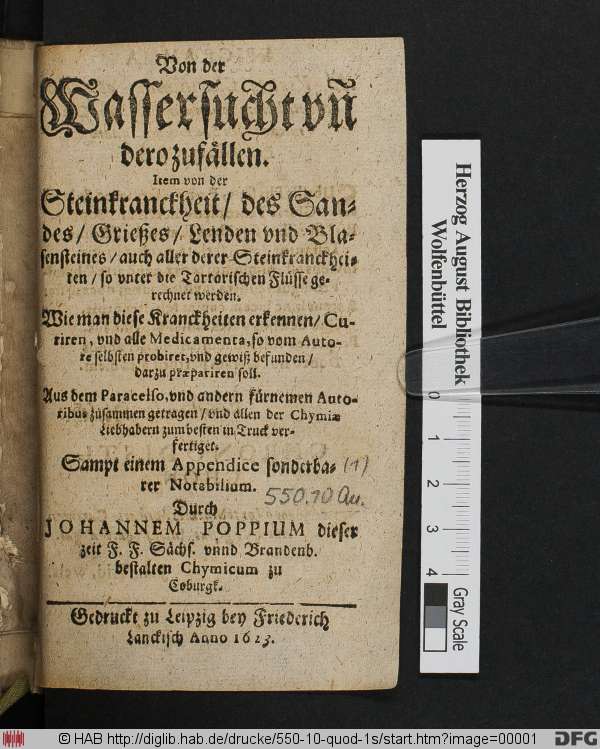 Von der
Wassersucht vñ
dero zufällen.
Item von der
Steinkranckheit / des San-
des / Grießes / Lenden vnd Bla-
sensteines / auch aller derer Steinkranckhei-
ten / so vnter die Tartarischen Flüsse ge-
rechnet werden.
Wie man diese Kranckheiten erkennen / Cu-
riren, vnd alle Medicamenta, so vom Auto-
re selbsten probiret, vnd gewiß befunden /
darzu præpariren soll.
Aus dem Paracelso, vnd andern fürnemen Auto-
ribus zusammen getragen / vnd allen der Chymiæ
Liebhabern zum besten in Truck ver-
fertiget.
Sampt einem Appendice sonderba-
rer Notabilium.
(1)
550.10 Qu.
Durch
JOHANNEM POPPIUM dieser
zeit F. F. Sächs. vnnd Brandenb.
bestalten Chymicum zu
Coburgk.
Gedruckt zu Leipzig bey Friederich
Lanckisch Anno 1623.
Herzog August Bibliothek
Wolfenbüttel
0
1
2
3
4
Gray Scale
© HAB http://diglib.hab.de/drucke/550-10-quod-1s/start.htm?image=00001
DFG